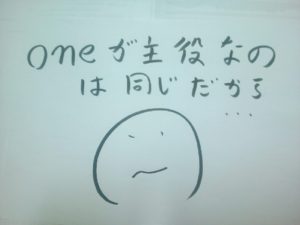 oneが主役なの
は同じだから
...